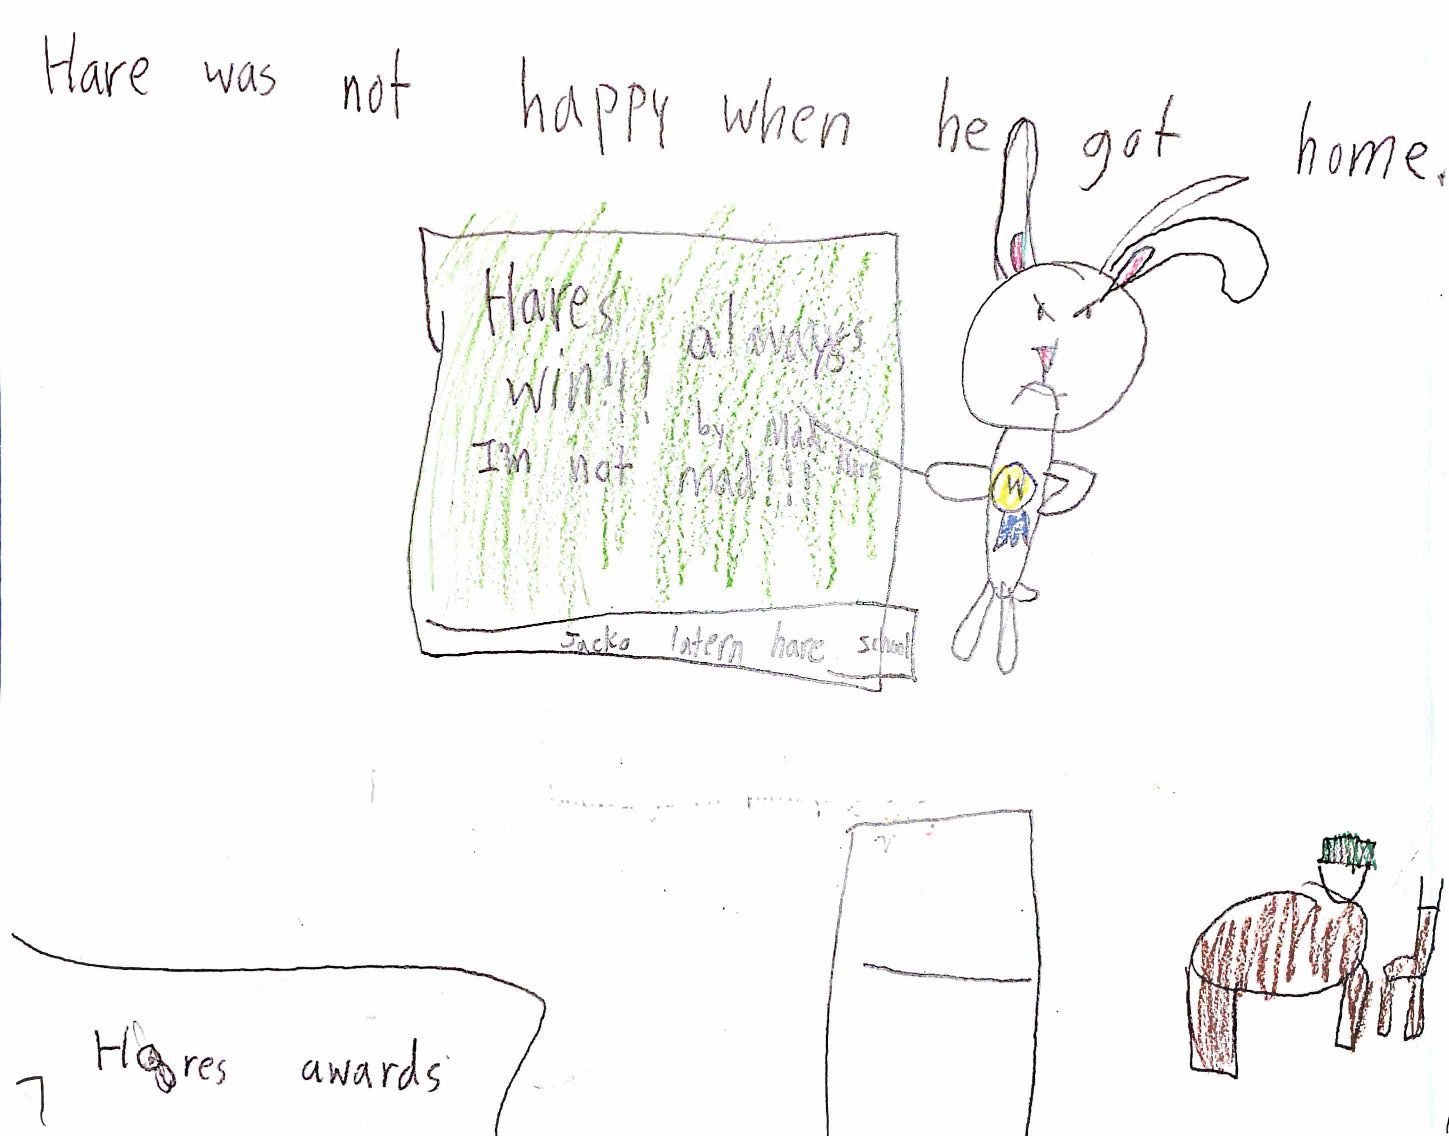 Hare was not happy when he got home.
Hares always
win!!!
by Mad Hare
I'm not mad!!!
W
Jacko latern hare school
Hares awards
7